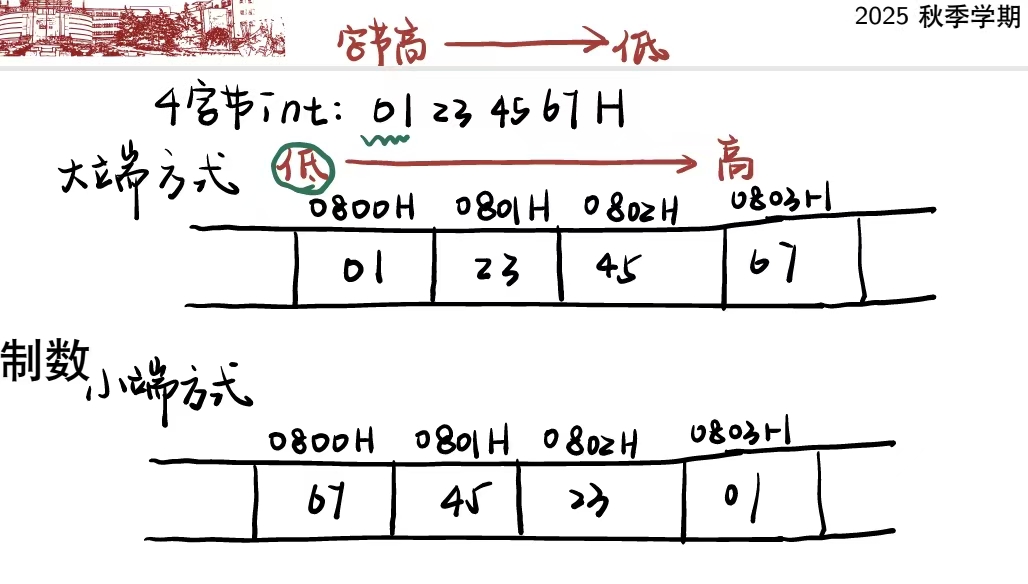 2025 秋季学期
字节高 → 低
4字节int: 01 23 45 67 H
大端方式 低 → 高
0800H 0801H 0802H 0803H
01 23 45 67
制数
小端方式
0800H 0801H 0802H 0803H
67 45 23 01